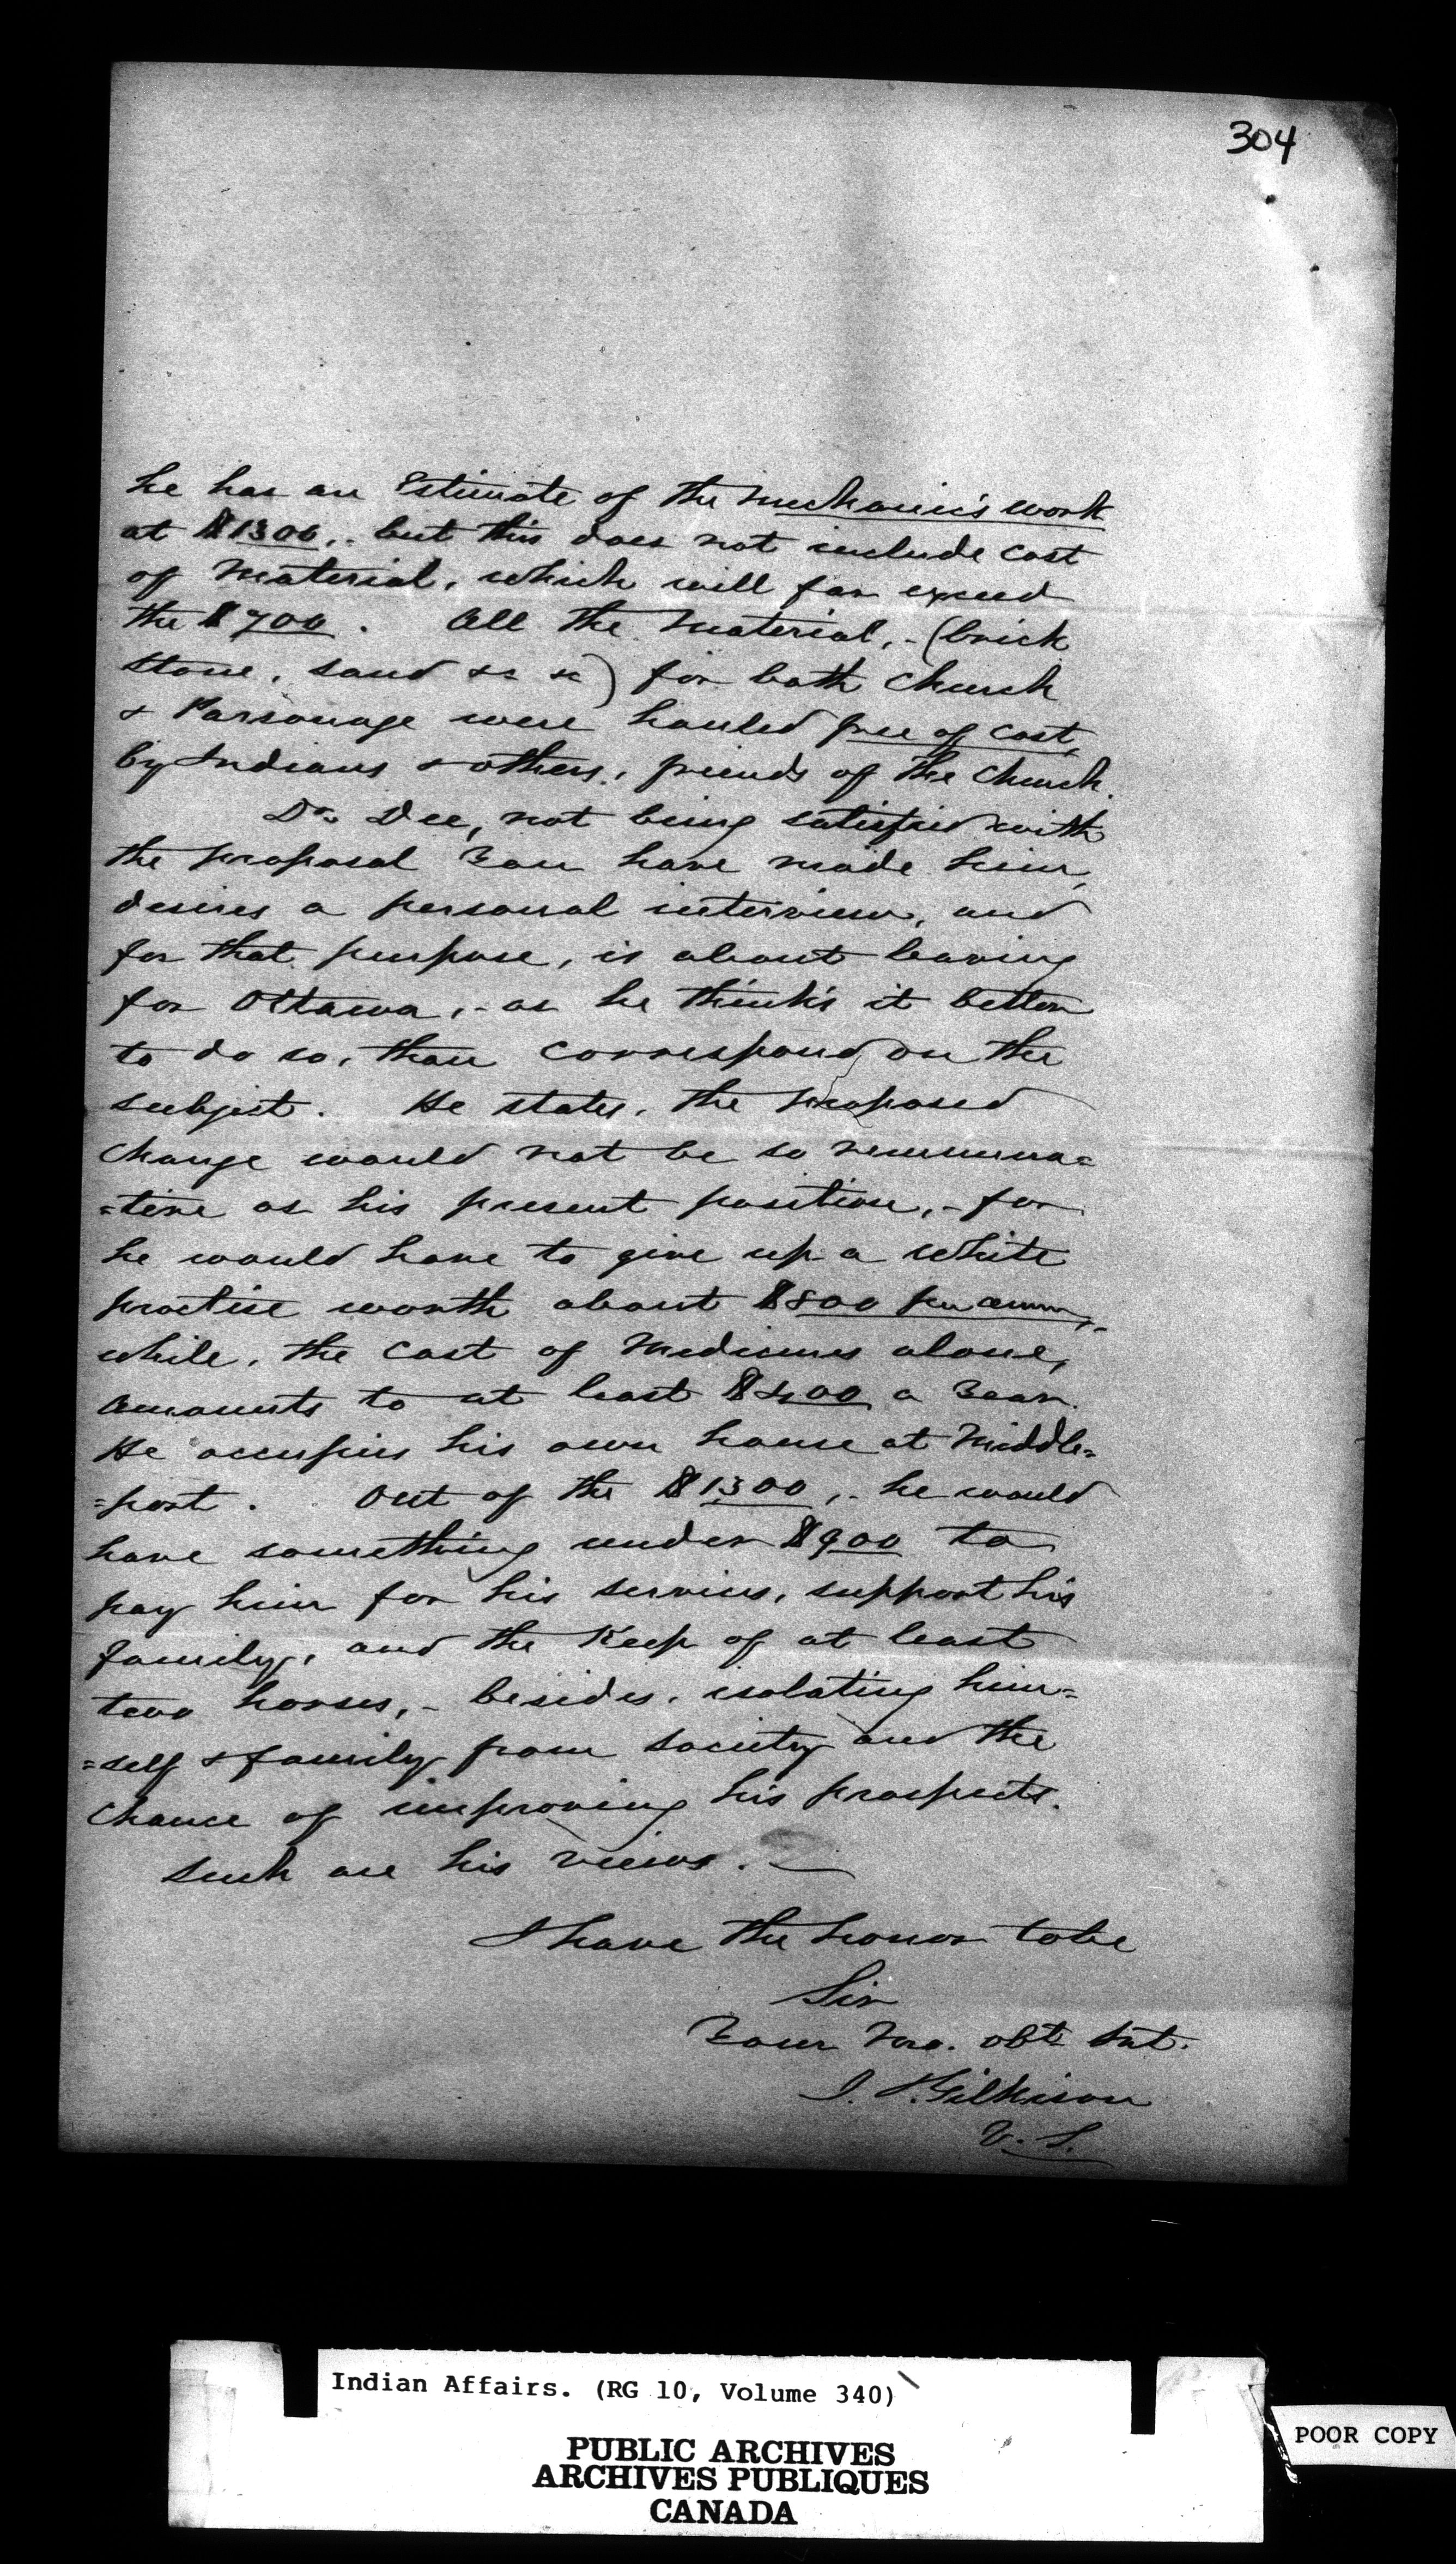 304
he has an Estimate of the mechanic's work
at $1300,- but this does not include cost
of material, which will far exceed
the $700. All the material,- (brick
stone, sand &c &c) for both Church
& Parsonage were hauled free of cost,
by Indians & others, friends of the Church.
Dr. Dee, not being satisfied with
the proposal You have made him,
desires a personal interview, and
for that purpose, is about leaving
for Ottawa,- as he thinks it better
to do so, than correspond on the
subject. He states, the proposed
change would not be so remunera=
=tive as his present position,- for
he would have to give up a white
practise worth about $800 per annum,-
while, the cost of Medicines alone,
amounts to at least $400 a Year.
He occupies his own house at Middle=
=port. Out of the $1300,- he would
have something under $900 to
pay him for his services, support his
family, and the Keep of at least
two horses,- besides, isolating him=
=self & family from society and the
chance of improving his prospects.
Such are his views.—
I have the honor to be
Sir
Your Mo. obt. Svt.
J. T. Gilkison
V. S.
Indian Affairs. (RG 10, Volume 340)
PUBLIC ARCHIVES
ARCHIVES PUBLIQUES
CANADA
POOR COPY